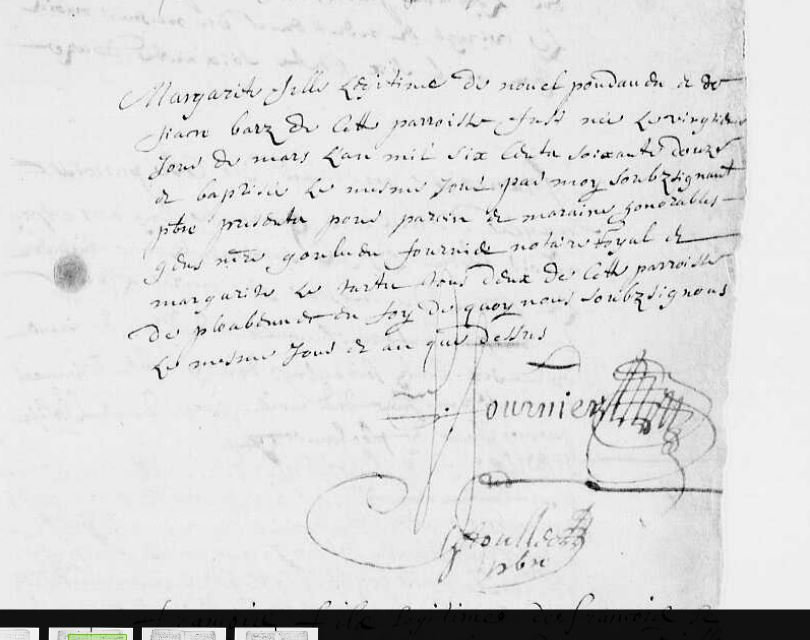 Margarite fille legitime de nouel pondaven et de
barz de cette parroisse fust née le vingtie
Jour de mars l'an mil six cents soixante douze
et baptisée le mesme Jour par moy soubzsignant
pbre presents pour parein et maraine honorables
gens goulven fournier notaire Royal et
margarite le tous deux de cette parroisse
de ploabennec en foy de quoy nous soubzsignons
le mesme Jour et an que dessus
fournier
pbre
fille legitime de francois le